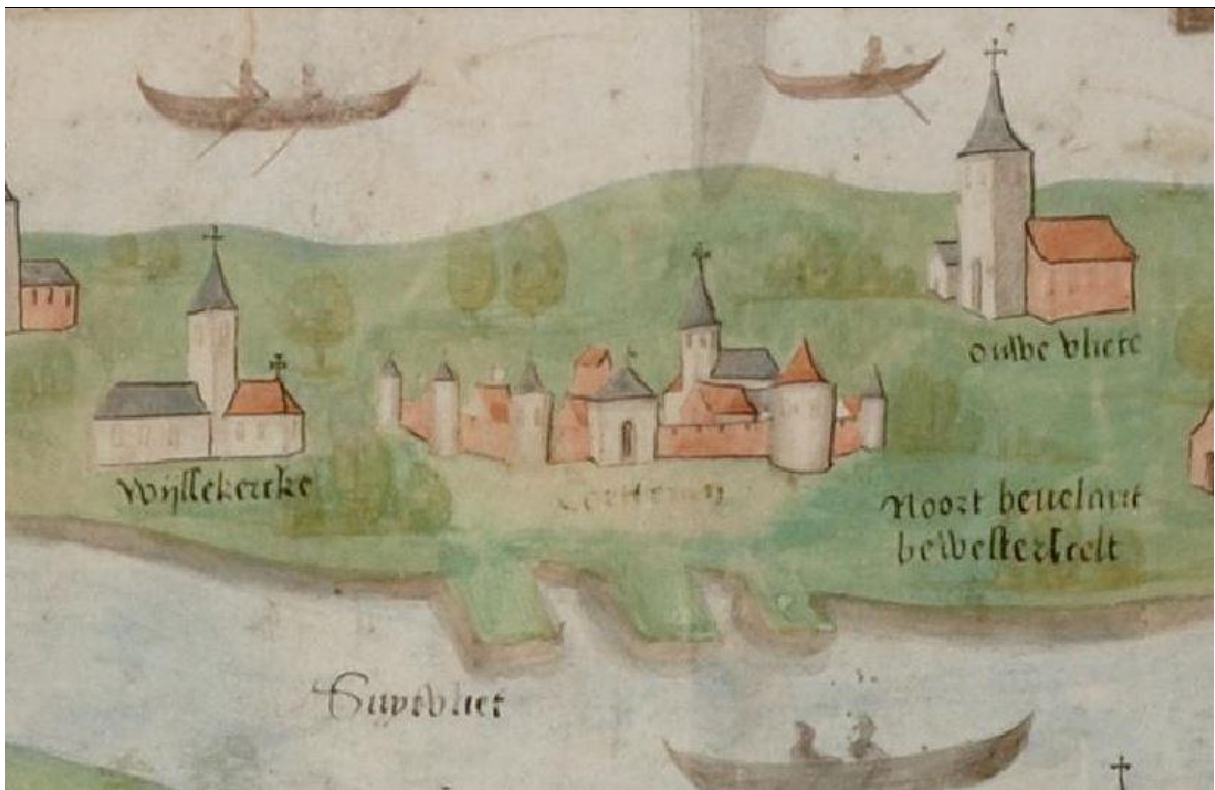 oude vliete
Wijssekercke
Noort bevelant
bewesterscelt
Suytvliet